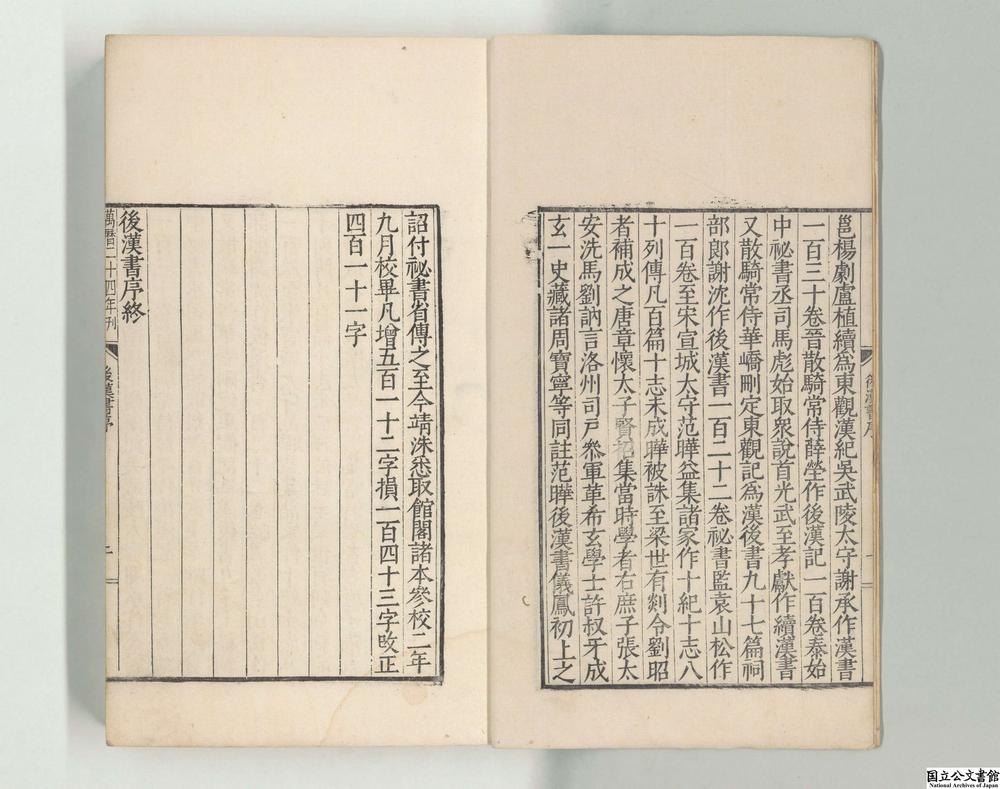 邕楊劇盧植續爲東觀漢紀吳武陵太守謝承作漢書
一百三十卷晉散騎常侍薛瑩作後漢記一百卷泰始
中祕書丞司馬彪始取衆說首光武至孝獻作續漢書
又散騎常侍華嶠刪定東觀記爲漢後書九十七篇祠
部郎謝沈作後漢書一百二十二卷祕書監袁山松作
一百卷至宋宣城太守范曄益集諸家作十紀十志八
十列傳凡百篇十志未成曄被誅至梁世有剡令劉昭
者補成之唐章懷太子賢招集當時學者右庶子張太
安洗馬劉訥言洛州司戸叅軍革希玄學士許叔牙成
玄一史藏諸周寶寧等同註范曄後漢書儀鳳初上之
後漢書序
一
詔付祕書省傳之至今靖洙悉取館閣諸本參校二年
九月校畢凡增五百一十二字損一百四十三字改正
四百一十一字
後漢書序終
萬曆二十四年刊
後漢書序
二
国立公文書館
National Archives of Japan